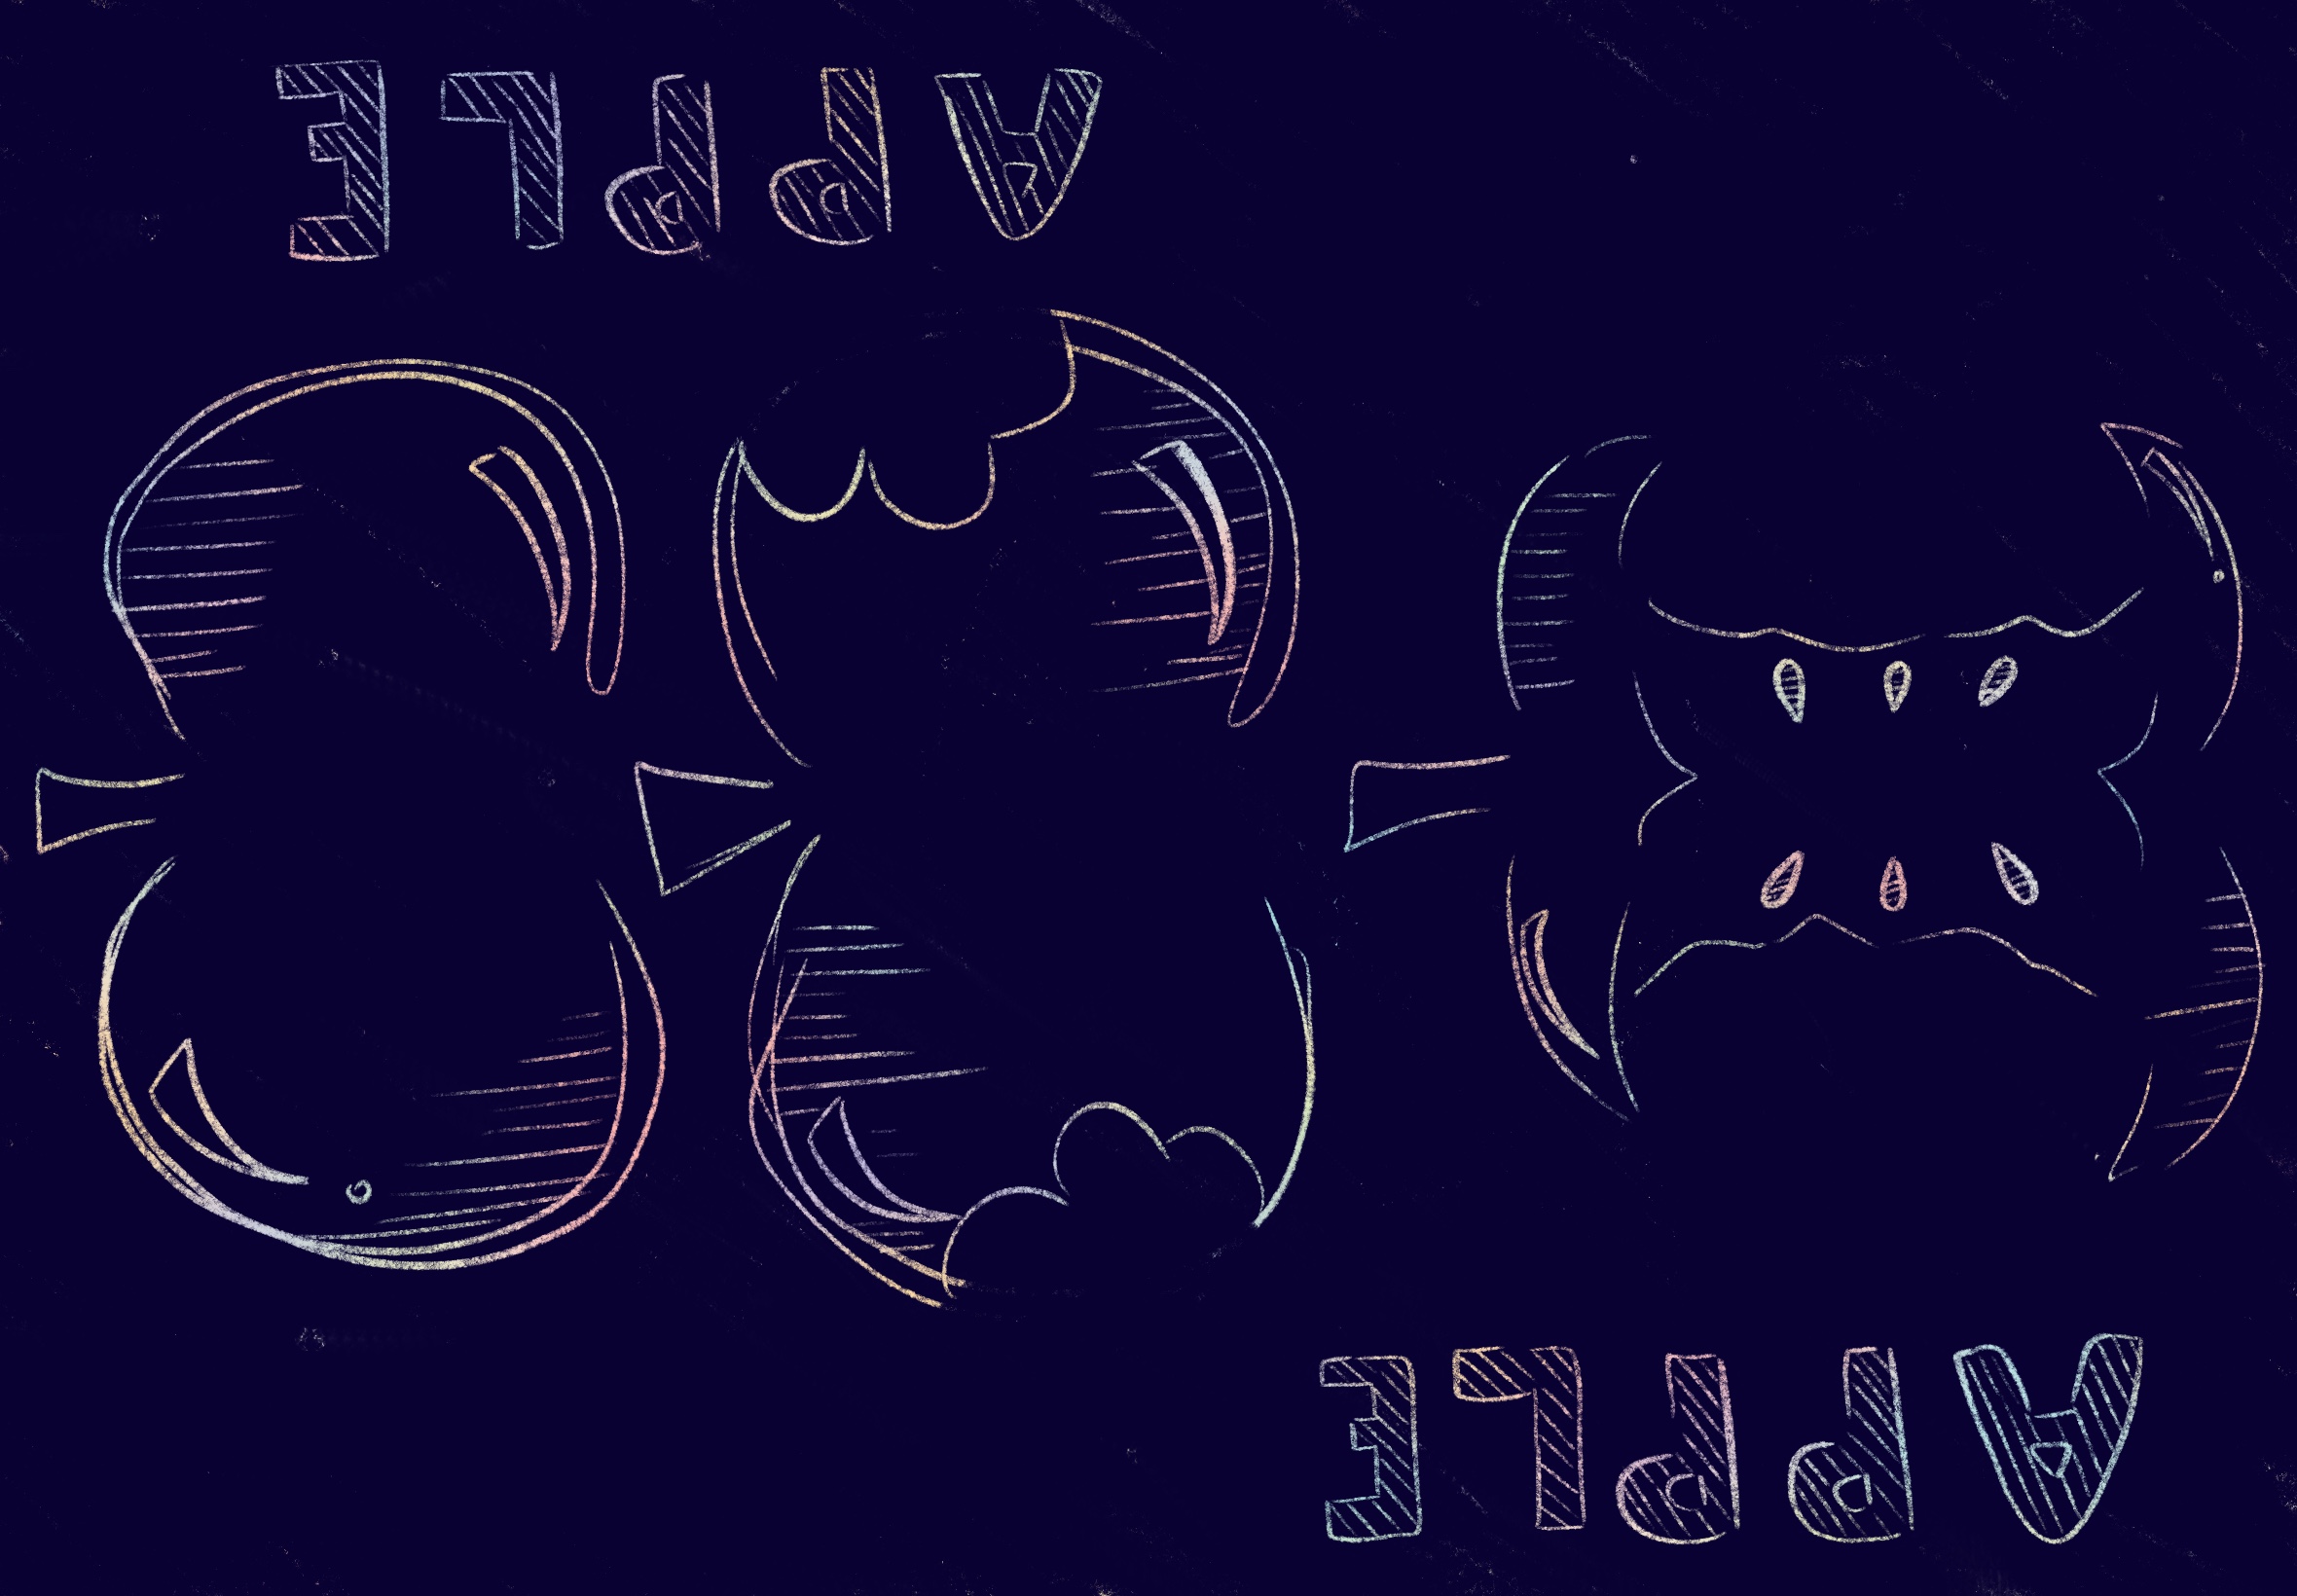 APPLE
APPLE